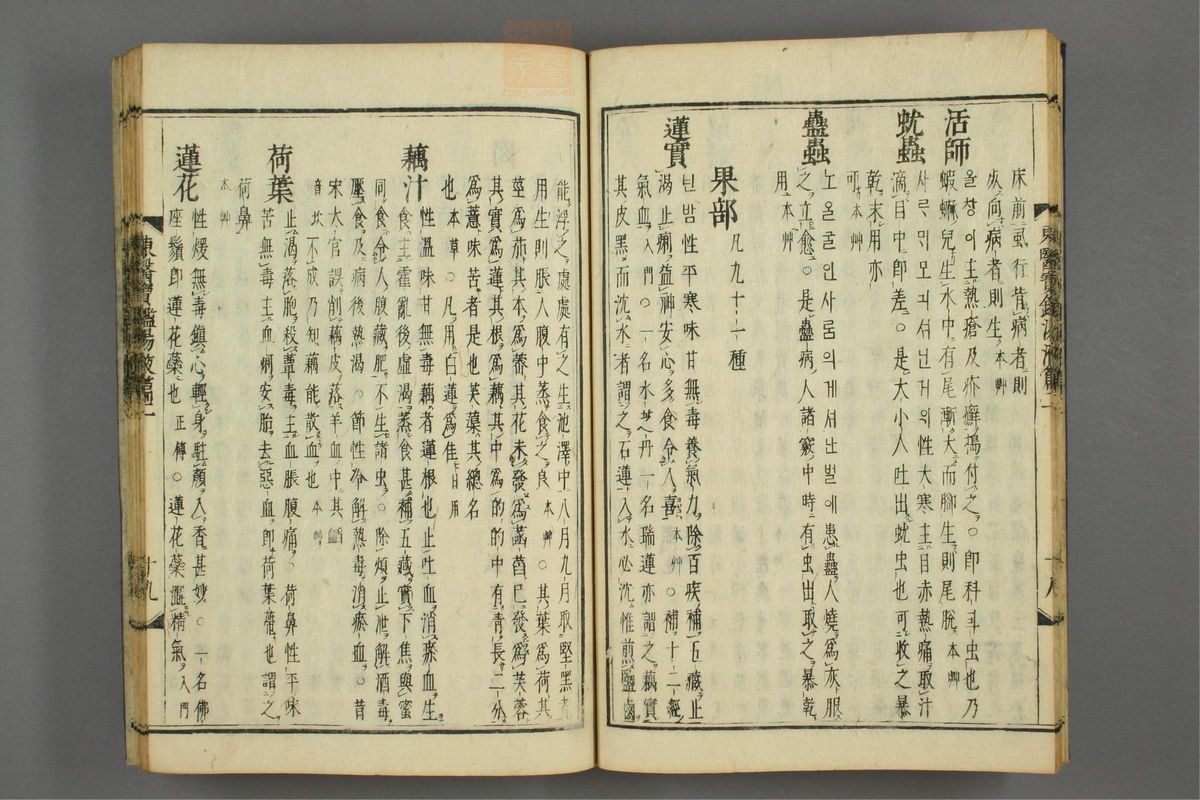 床前虱行背病者則
灰向病者則生 本艸
活師 올창이主熱瘡及疥癬搗付之○卽科斗虫也乃
蝦蟆兒生水中有尾漸大而脚生則尾脫 本艸
蚘蟲 긔셔난거의性大寒主目赤熱痛取汁
滴目中卽差○是大小人吐出蚘虫也可收之暴
乾末用亦
可 本艸
蠱蟲 노올굴인사룸의게셔난벌에患蠱人燒爲灰服
之立愈○是蠱病人諸竅中時有虫出取之暴乾
用 本艸
果部 凡九十一種
蓮實 년밤性平寒味甘無毒養氣力除百疾補五藏止
渴止痢益神安心多食令人喜 本艸○補十二經
氣血 入門○一名水芝丹一名瑞蓮亦謂之藕實
其皮黑而沈水者謂之石蓮入水必沈惟煎鹽鹵
東醫寶鑑湯液篇二 十八
能浮之處處有之生池澤中八月九月取堅黑者
用生則脹人腹中蒸食之良 本艸○其葉爲荷其
莖爲茄其本爲蔤其花未發爲菡萏已發爲芙蓉
其實爲蓮其根爲藕其中爲的的中有靑長二分
爲薏味苦者是也芙蕖其總名
也 本草○凡用白蓮爲佳 日用
藕汁 性溫味甘無毒藕者蓮根也止吐血消瘀血生
食主霍亂後虛渴蒸食甚補五藏實下焦與蜜
同食令人腹藏肥不生諸虫○除煩止泄解酒毒
壓食及病後熱渴○節性冷解熱毒消瘀血○昔
宋太官誤削藕皮落羊血中其䘓
音坎不成乃知藕能散血也 本艸
荷葉 止渴落胞殺蕈毒主血脹腹痛○荷鼻性平味
苦無毒主血痢安胎去惡血卽荷葉蔕也謂之
荷鼻
本艸
蓮花 性煖無毒鎭心輕身駐顏入香甚妙○一名佛
座鬚卽蓮花蘂也 正傳○蓮花蘂澁精氣 入門
東醫寶鑑湯液篇二 十九